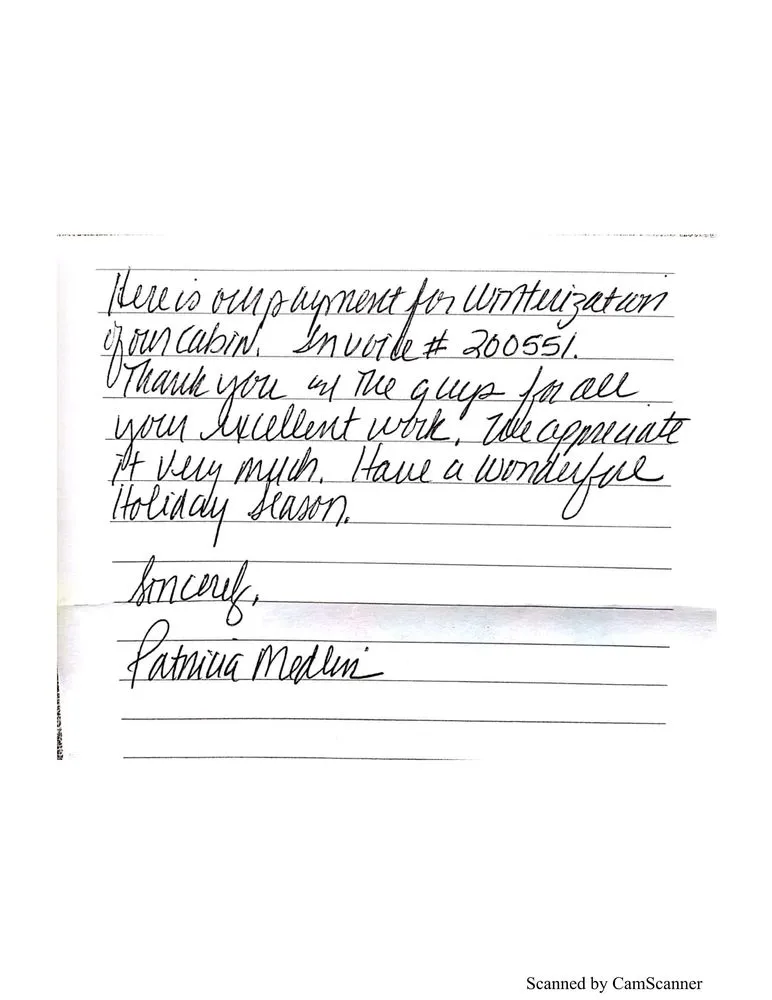 Here is our payment for Winterization
of our cabin. Invoice # 200551.
Thank you and the guys for all
your excellent work. We appreciate
it very much. Have a wonderful
Holiday Season.
Sincerely,
Patricia Medlin
Scanned by CamScanner